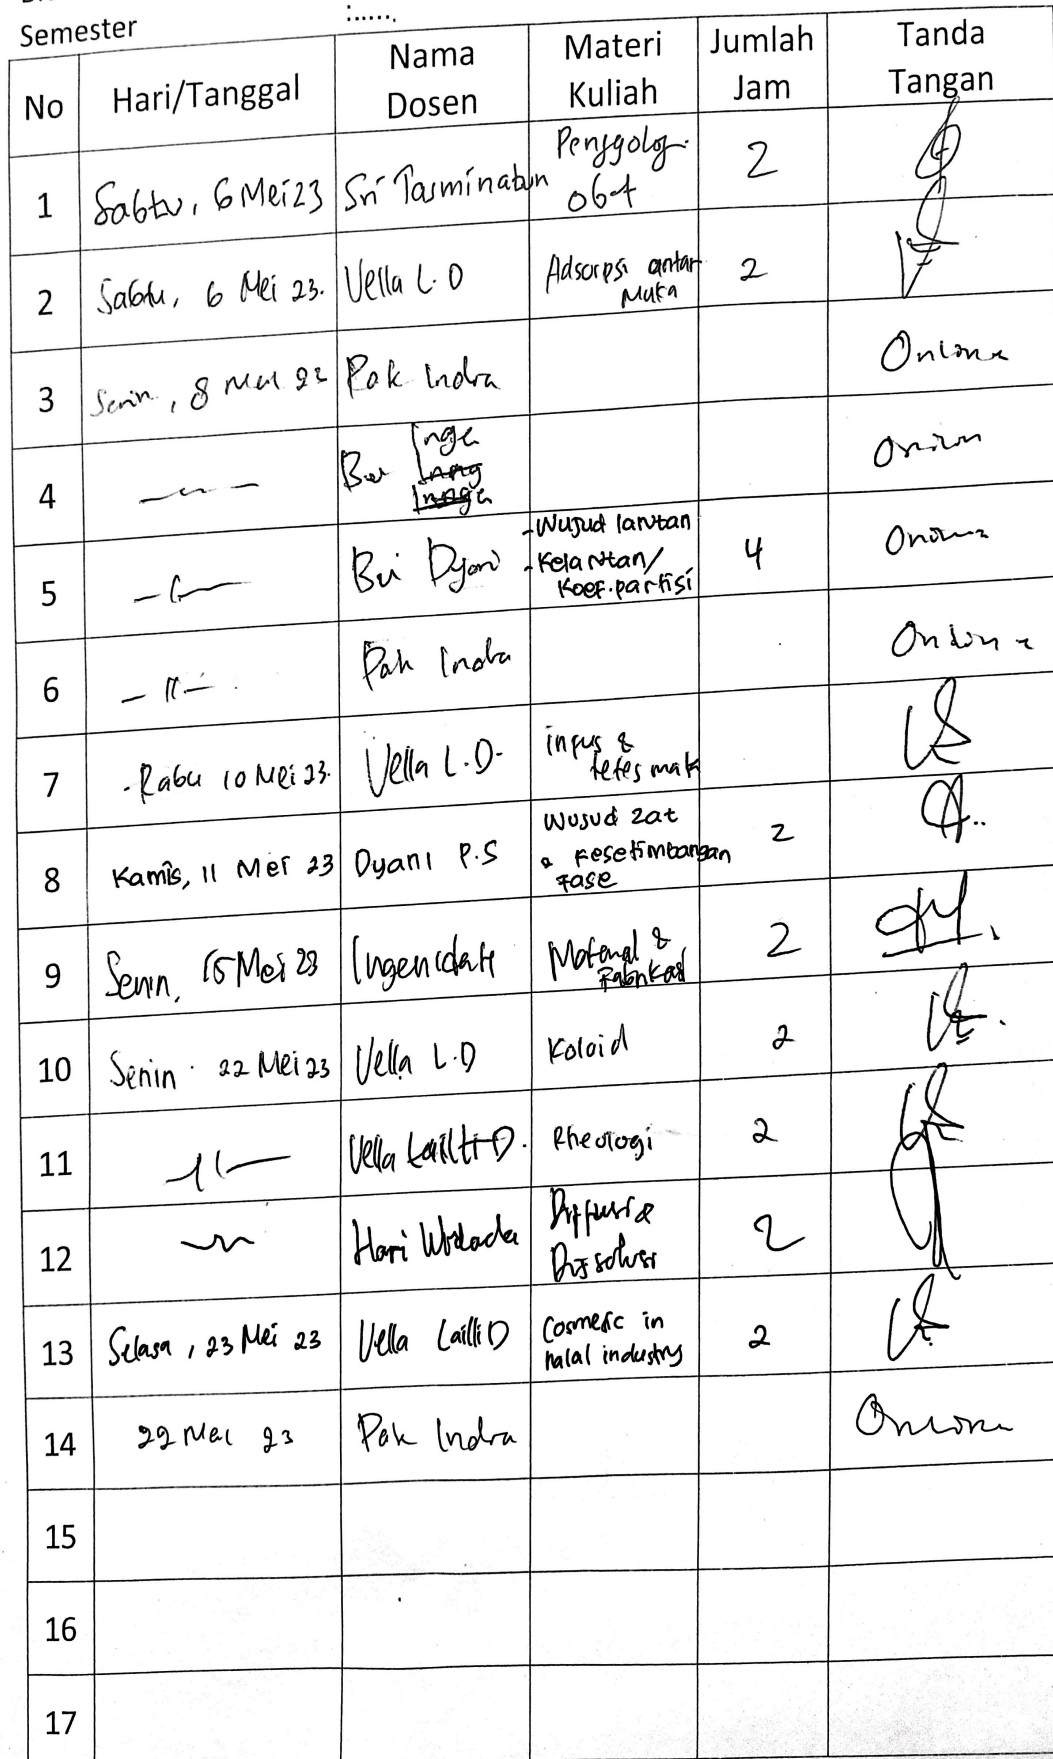 Semester :......
No Hari/Tanggal Nama Dosen Materi Kuliah Jumlah Jam Tanda Tangan
1 Sabtu, 6 Mei 23 Sri Tasminatun Penggolog. obat 2
2 Sabtu, 6 Mei 23. Vella L.D Adsorpsi antar Muka 2
3 Senin, 8 Mei 23 Pak Indra Online
4 Bu Inge Online
5 Bu Dyani - Wujud larutan - Kelarutan/ Koef.partisi 4 Online
6 - 11 - Pak Indra Online
7 Rabu 10 Mei 23. Vella L.D. infus & tetes mata
8 Kamis, 11 Mei 23 Dyani P.S Wujud zat & Kesetimbangan Fase 2
9 Senin, 15 Mei 23 Material & Fabrikasi 2
10 Senin 22 Mei 23 Vella L.D Koloid 2
11 Vella Lailli D. Rheologi 2
12 Hari Widada Diffusi & Dissolusi 2
13 Selasa, 23 Mei 23 Vella Lailli D Cosmetic in halal industry 2
14 22 Mei 23 Pak Indra Online
15
16
17